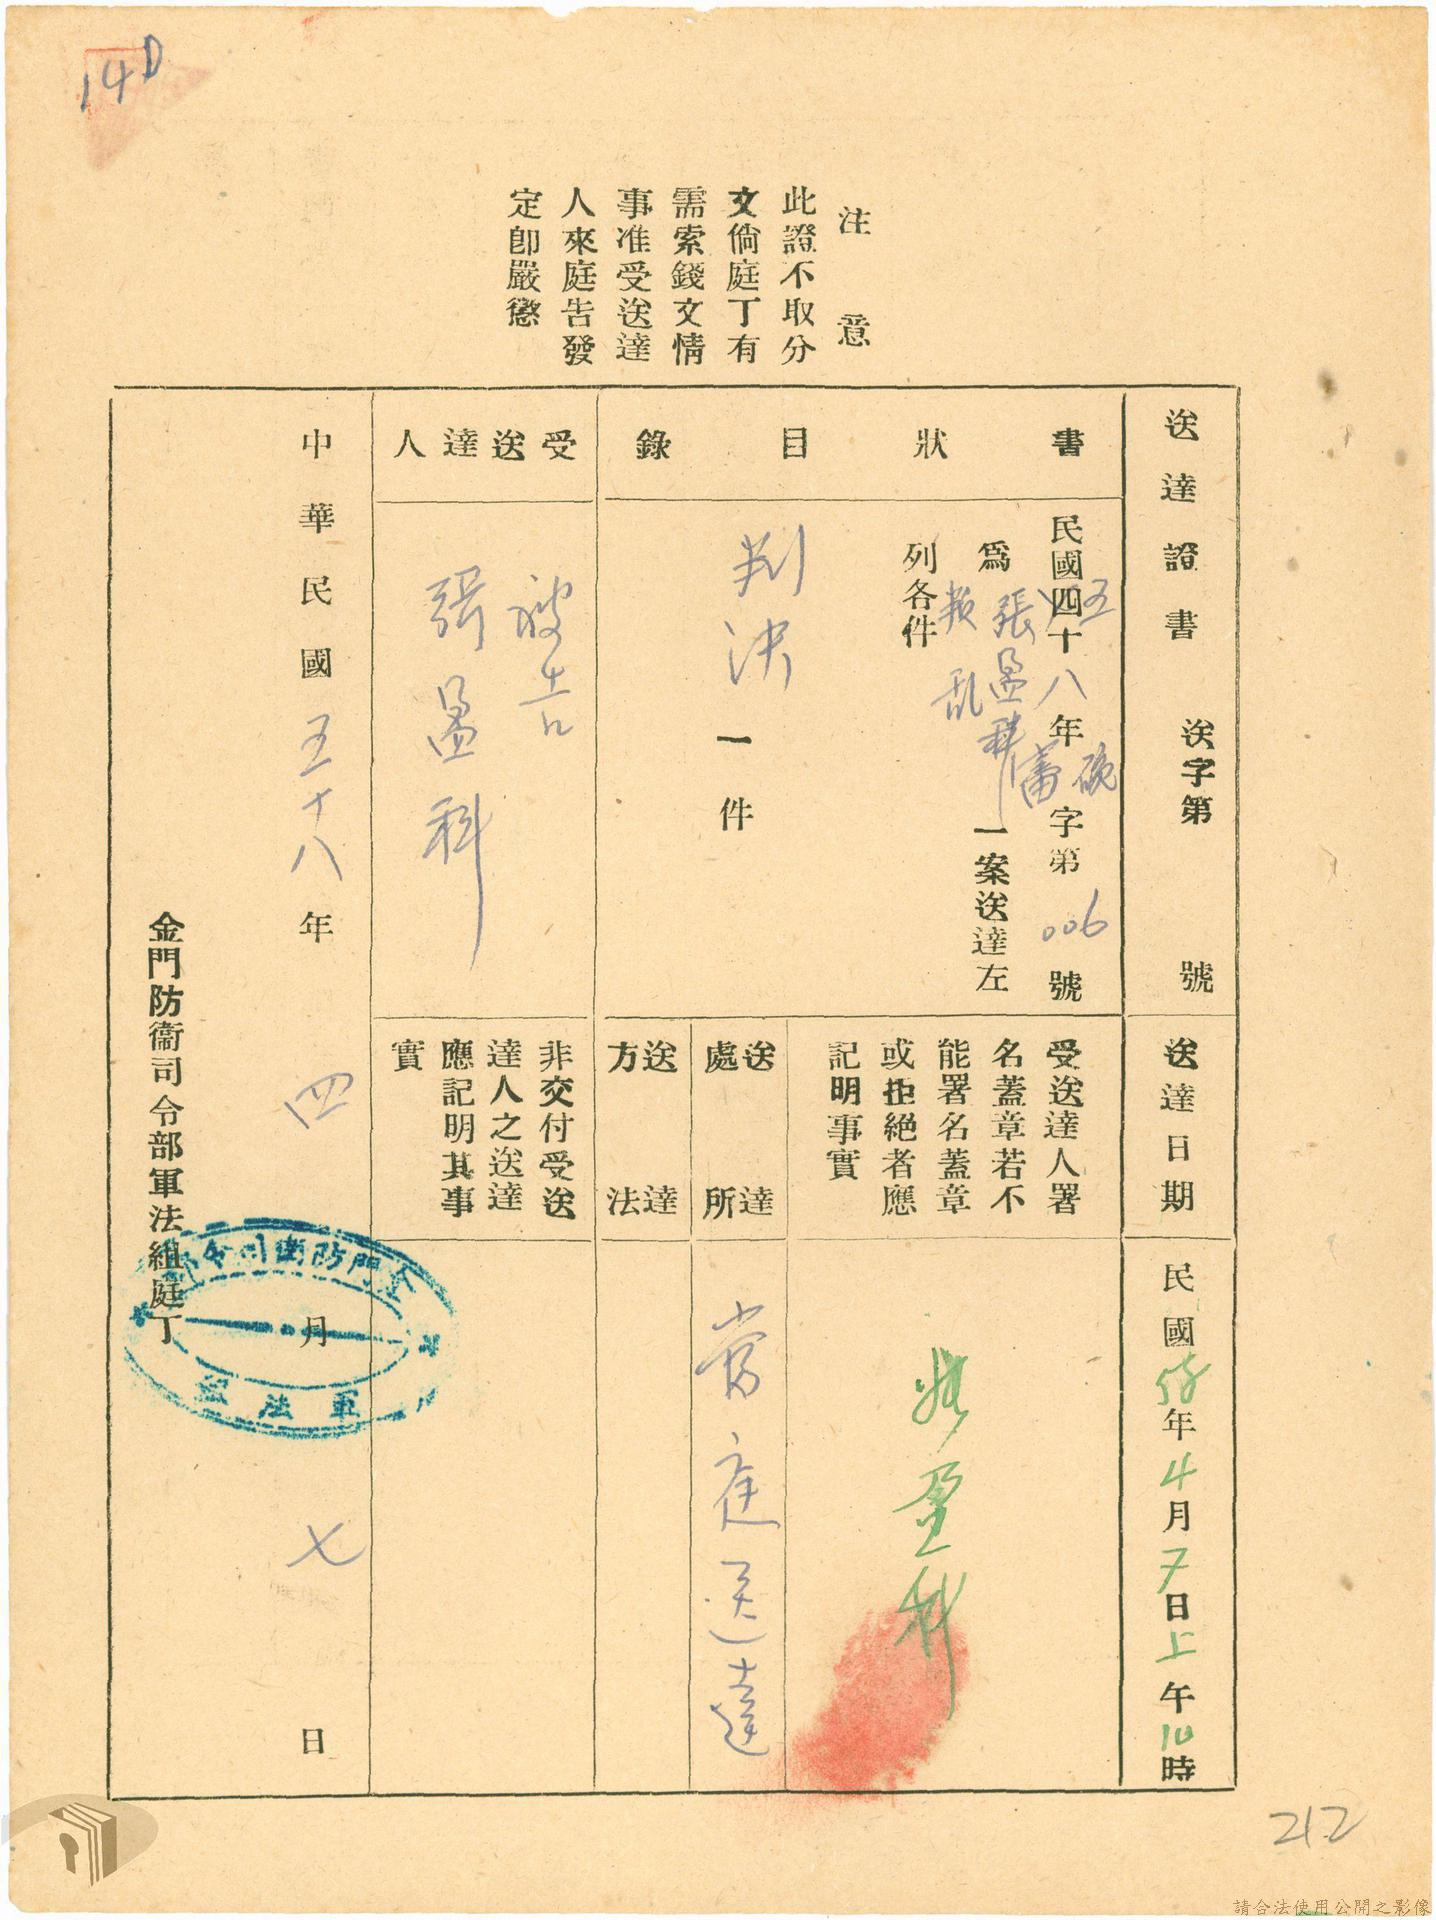 14D
注意
此證不取分
文倘庭丁有
需索錢文情
事准受送達
人來庭告發
定卽嚴懲
送達證書
送字第 號
送達日期
民國58年4月7日上午10時
書狀目錄
民國四十八年 字第006號
五
為張盈科
叛亂
一案送達左
列各件
判決一件
受送達人署
名蓋章若不
能署名蓋章
或拒絕者應
記明事實
張盈科
送達處所
當庭送達
送達方法
受送達人
被告
張盈科
非交付受送
達人之送達
應記明其事
實
中華民國五十八年四月七日
金門防衞司令部軍法組庭丁
金門防衛司令部
軍法組
212
請合法使用公開之影像